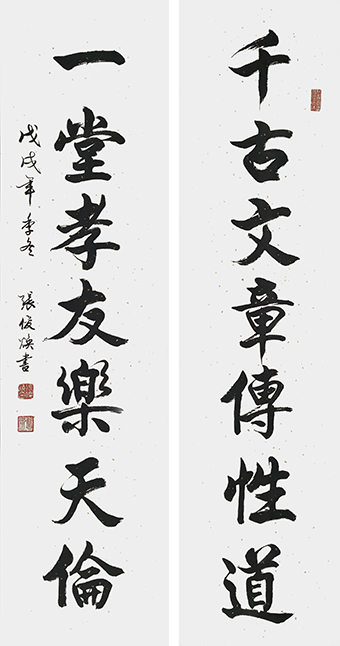 千古文章傳性道
一堂孝友樂天倫
戊戌年季冬 張俊煥書